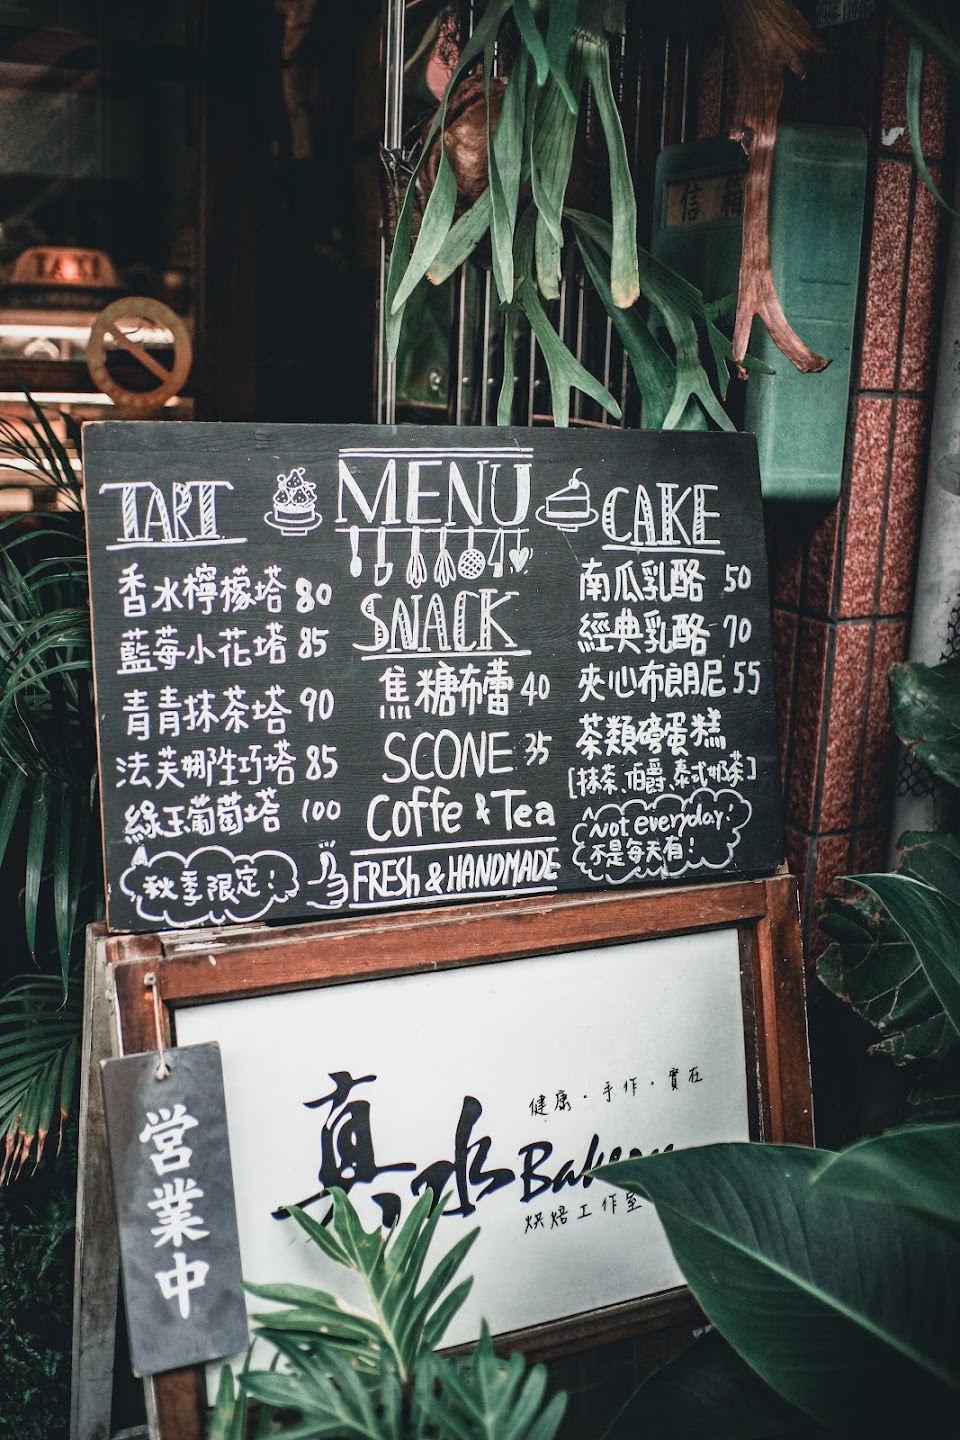 信箱
TAXI
MENU
TART
香水檸檬塔 80
藍莓小花塔 85
青青抹茶塔 90
法芙娜生巧塔 85
綠玉葡萄塔 100
秋季限定!
SNACK
焦糖布蕾 40
SCONE 35
Coffe & Tea
FRESh & HANDMADE
CAKE
南瓜乳酪 50
經典乳酪 70
夾心布朗尼 55
茶類磅蛋糕
[抹茶、伯爵、泰式奶茶]
Not everyday!
不是每天有!
営業中
健康・手作・實在
真水 Bakery
烘焙工作室